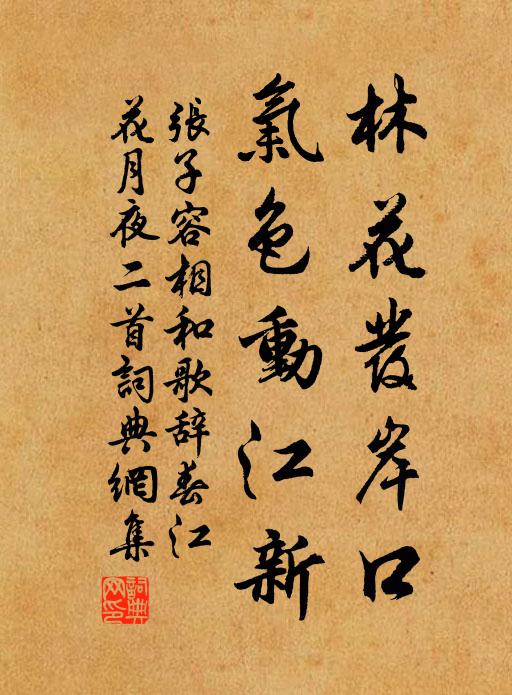 林花發岸口
氣色動江新
張子容相和歌辞春江
花月夜二首詞典網集
詞典
网印